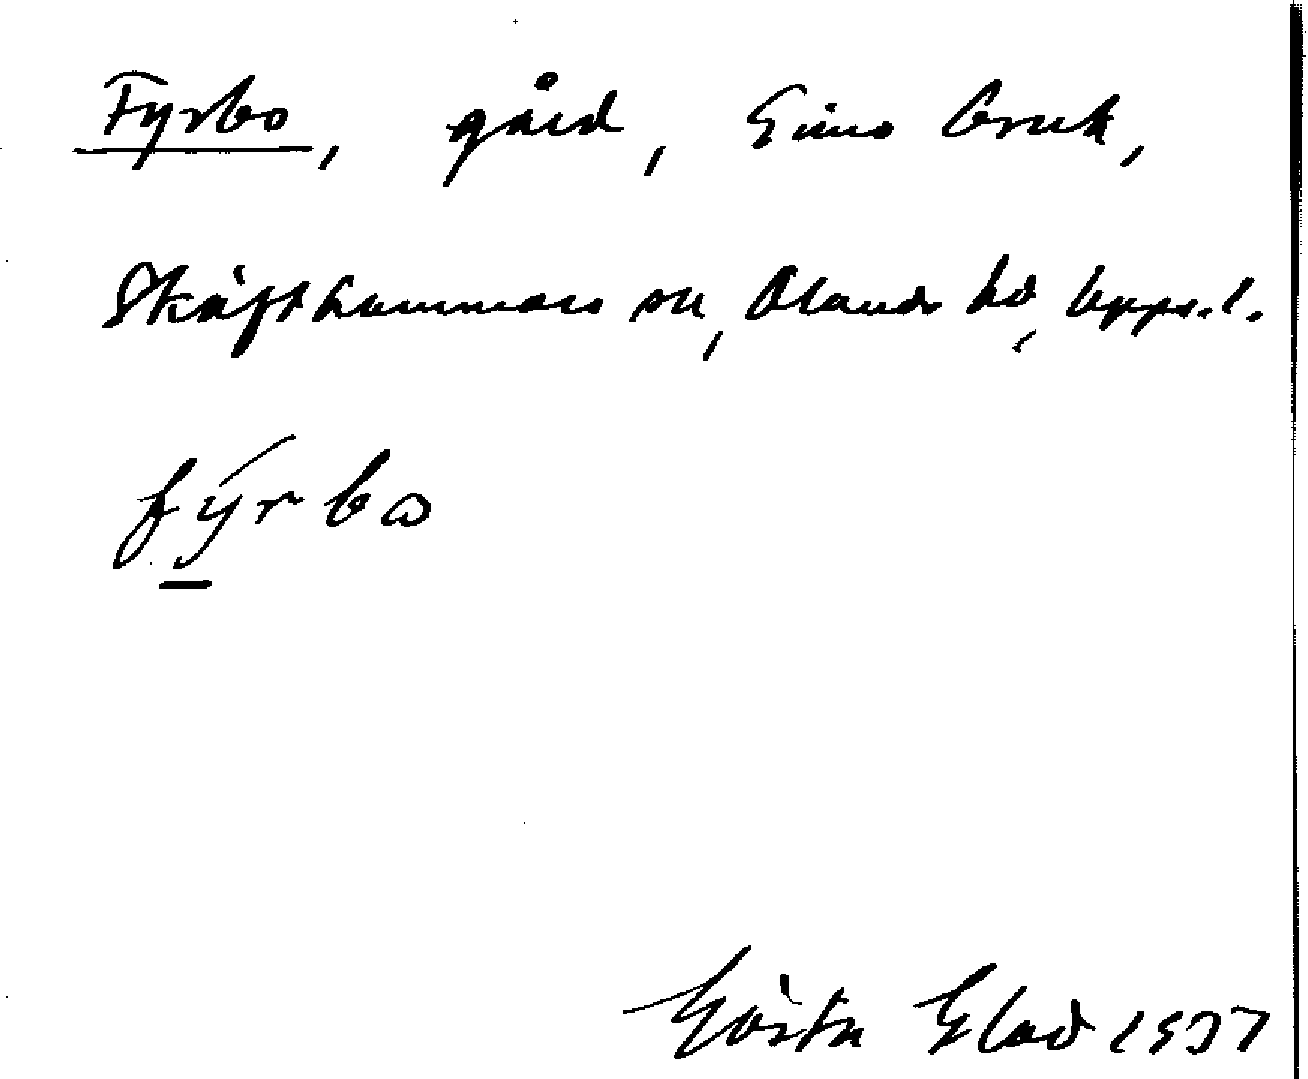 Fyrbo, gård, Gimo bruk,
Skäfthammars sn, Olands hd, Upps.l.
fýrbω
Gösta Glad 1937